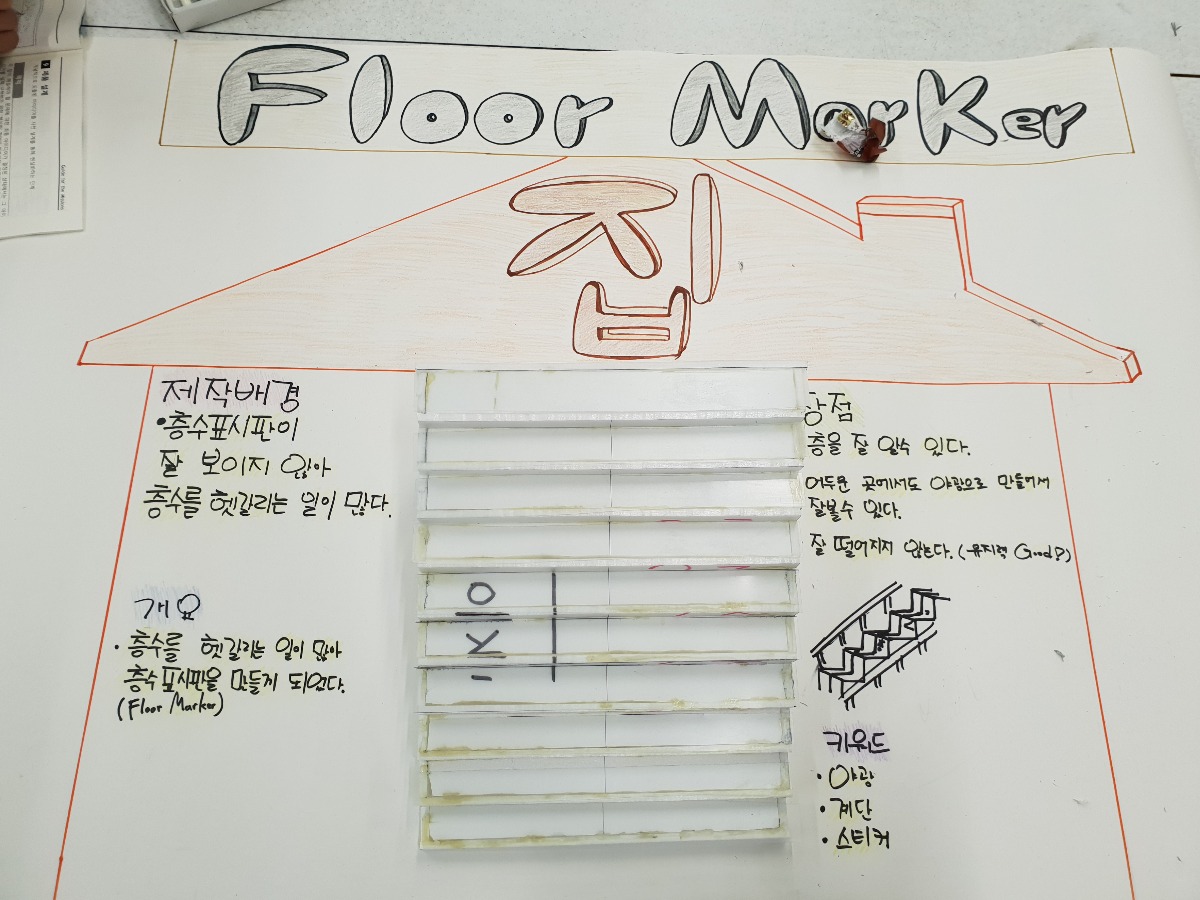 Floor Marker
집
제작배경
•층수표시판이
잘 보이지 않아
층수를 헷갈리는 일이 많다.
개요
· 층수를 헷갈리는 일이 많아
층수표시판을 만들게 되었다.
(Floor Marker)
장점
층을 잘 알수 있다.
어두운 곳에서도 야광으로 만들어서
잘볼수 있다.
잘 떨어지지 않는다. (유지력 Good?)
키워드
• 야광
• 계단
• 스티커